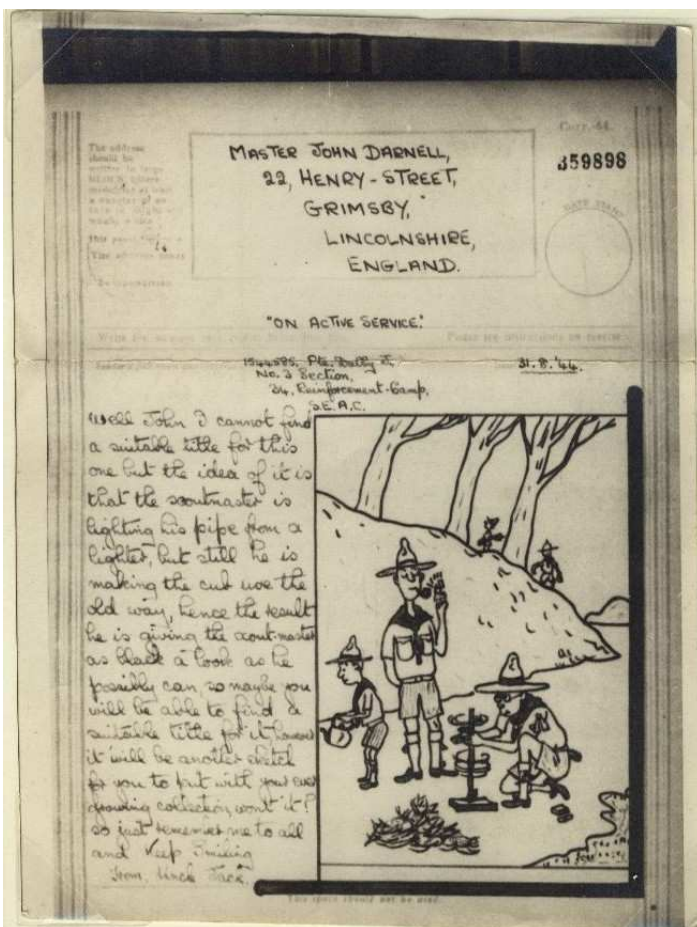 Corr.-44.
The address
should be
written in large
MASTER JOHN DARNELL,
22, HENRY-STREET,
GRIMSBY,
LINCOLNSHIRE,
ENGLAND.
359898
DATE STAMP
"ON ACTIVE SERVICE."
1544595. Pte. Dally J,
No. 2 Section,
34, Reinforcement-Camp,
S.E.A.C.
31.8.'44.
Well John I cannot find
a suitable title for this
one but the idea of it is
that the scoutmaster is
lighting his pipe from a
lighter, but still he is
making the cub use the
old way, hence the result
he is giving the scout-master
as black a look as he
possibly can, so maybe you
will be able to find a
suitable title for it, however
it will be another sketch
for you to put with your ever
growing collection, won't it?
so just remember me to all
and Keep Smiling
From, Uncle Jack.
This space should not be used.